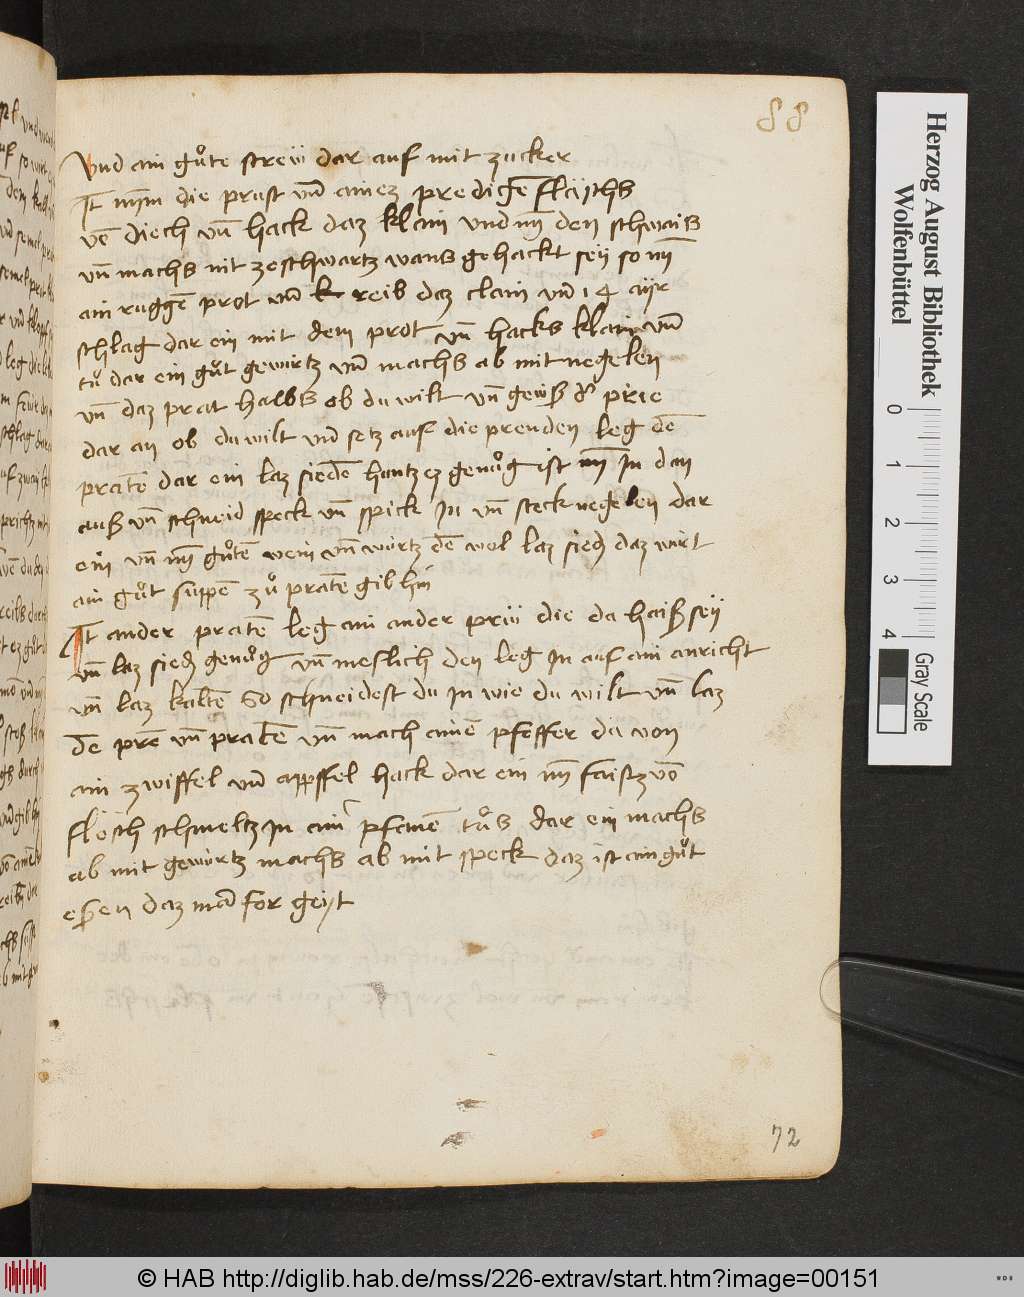 88
Vnd ain gůte streü dar auf mit zucker
It̄ nȳm die prust vn̄ ainez predigē flaÿschs
vō diech vn̄ hack daz klain vnd nȳ den schwais
vn̄ machs nit zeschwartz wans gehackt seÿ so nȳ
ain ruggē prot vn̄ reib daz clain vn̄ 14 aÿr
schlag dar ein mit dem prot vn̄ hacks klain vn̄
tů dar ein gůt gewürtz vn̄ machs ab mit negelen
vn̄ daz prat halbs ob du wilt vn̄ geuß d' prie
dar an ob du wilt vnd setz auf die prenden leg dē
pratē dar ein laz siedē hantz ez genůg ist nȳ In dan
auß vn̄ schneid speck vn̄ spick In vn̄ steck negelen dar
ein vn̄ nȳ gůtē wein vn̄ würtz dē wol laz sied daz wirt
ain gůt suppē zů pratē gib hin
It̄ ander pratē leg ain ander prüÿ die da haiß seÿ
vn̄ laz sied genůg vn̄ meslich den leg In auf ain anricht
vn̄ laz kaltē So schneidest du In wie du wilt vn̄ laz
dē prē vn̄ pratē vn̄ mach ainē pfeffer da von
ain zwiffel vn̄ appffel hack dar ein nȳ faistz vō
flesch schmeltz In ain pfanē tůs dar ein machs
ab mit gewürtz machs ab mit speck daz ist ain gůt
eßen daz mā for geÿt
72
Herzog August Bibliothek
Wolfenbüttel
0 1 2 3 4
Gray Scale
© HAB http://diglib.hab.de/mss/226-extrav/start.htm?image=00151